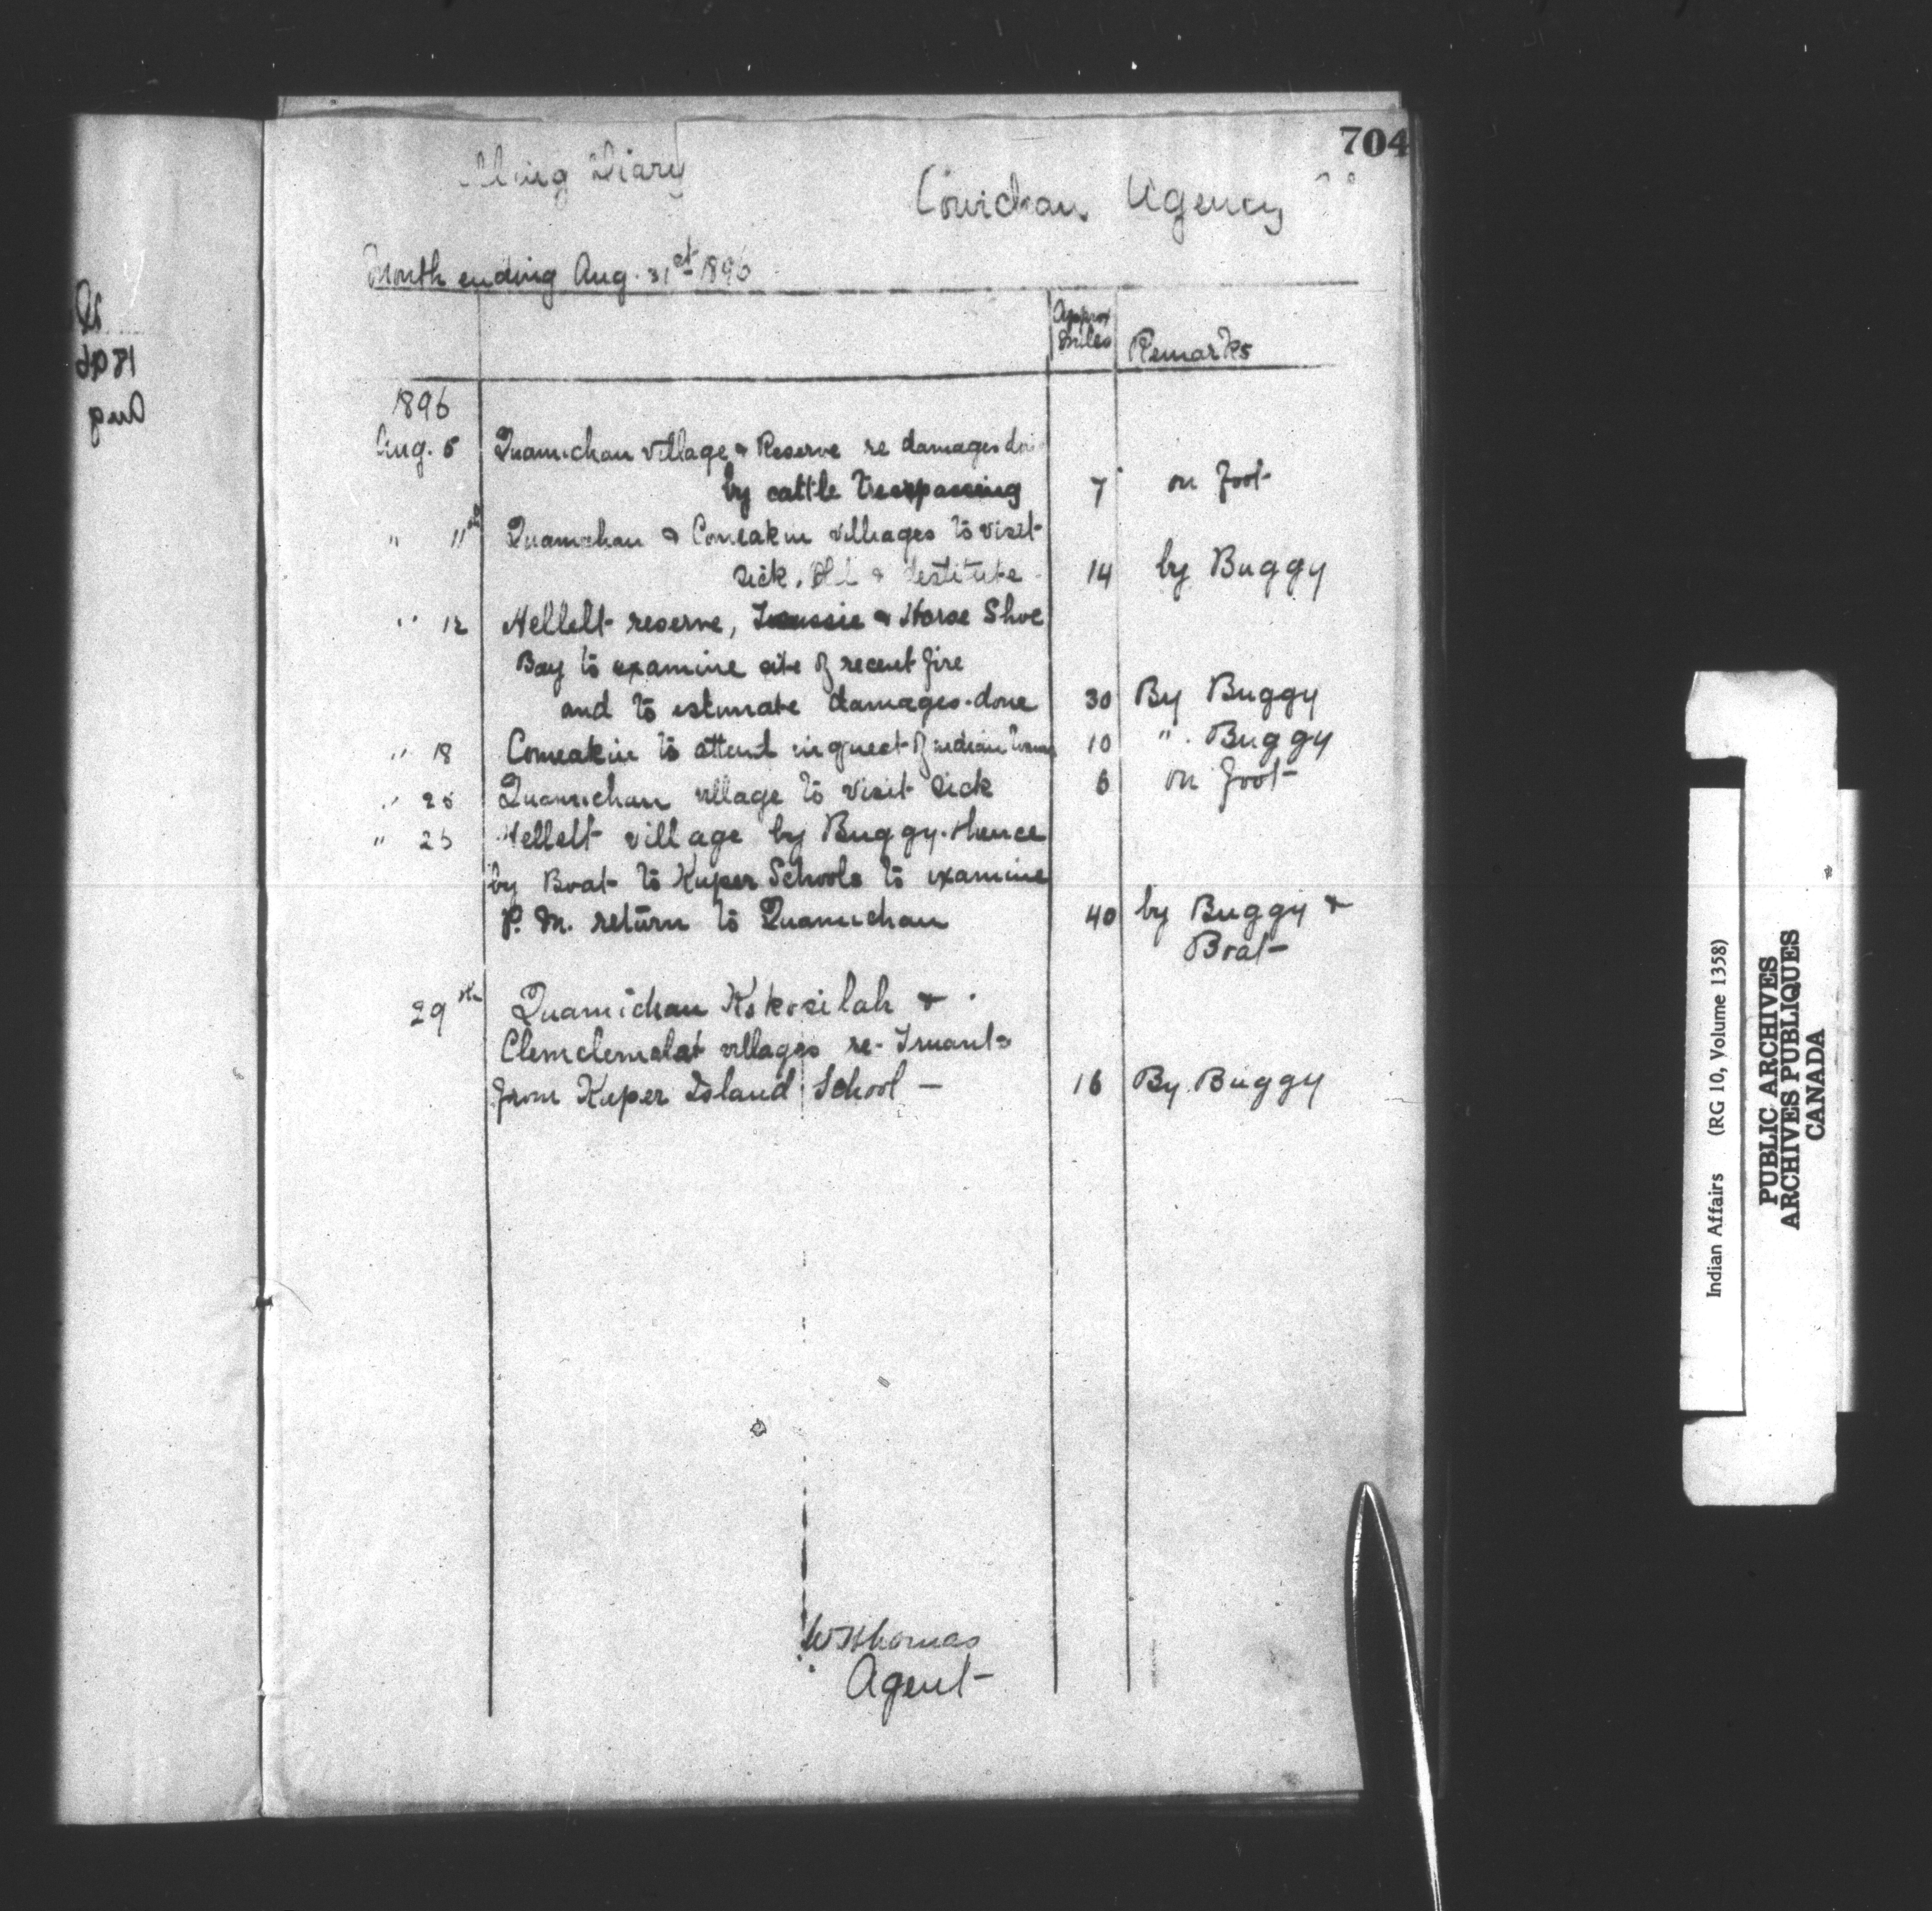 704
Diary
Cowichan Agency
Month ending Aug. 31st 1896
Approx miles
Remarks
1896
Aug. 5 Quamichan Village & Reserve re damages
by cattle trespassing 7 on foot
" 11th Quamichan & Comeakin villiages to visit
sick, Old & destitute 14 by Buggy
" 12 Hellelt reserve, & Horse Shoe
Bay to examine site of recent fire
and to estimate damages done 30 By Buggy
" 18 Comeakin to attend inquest of indian 10 " Buggy
" 25 Quamichan village to visit sick 6 on foot
" 25 Hellelt village by Buggy. thence
by Boat to Kuper Schools to examine
P.M. return to Quamichan 40 by Buggy &
Boat
29th Quamichan Kokosilah &
Clemclemalat villages re-Truants
from Kuper Island School — 16 By Buggy
WH Lomas
Agent
Indian Affairs (RG 10, Volume 1358)
PUBLIC ARCHIVES
ARCHIVES PUBLIQUES
CANADA